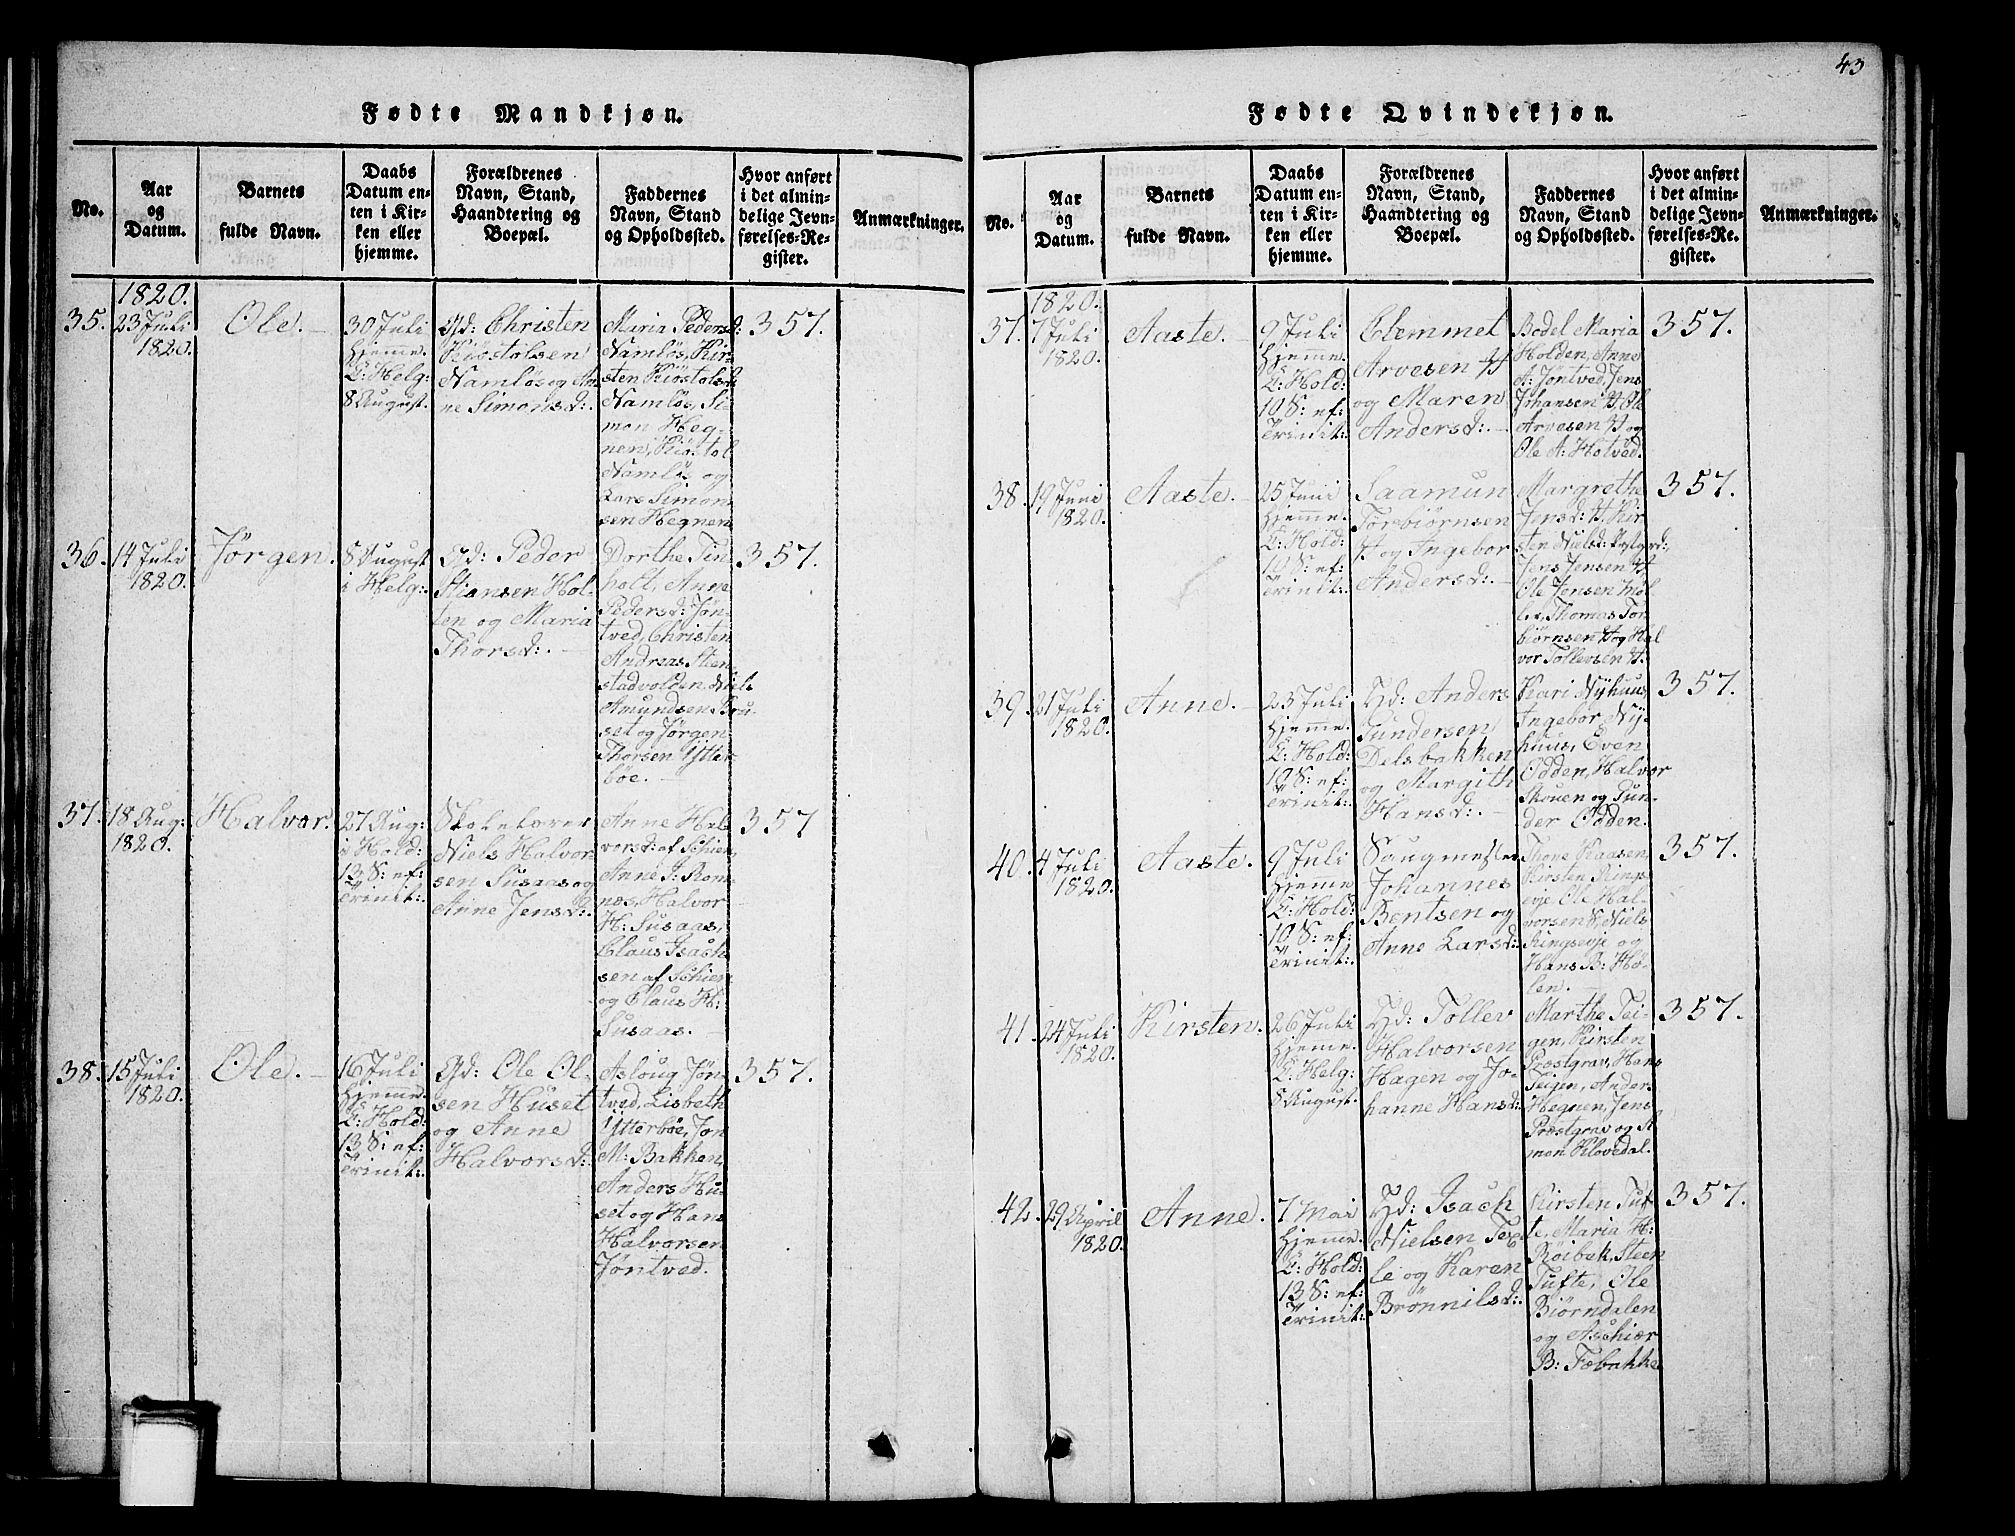 43
Fødte Mandkjøn.
No.
Aar
og
Datum.
Barnets
fulde Navn.
Daabs
Datum en-
ten i Kir-
ken eller
hjemme.
Forældrenes
Navn, Stand,
Haandtering og
Boepæl.
Faddernes
Navn, Stand
og Opholdssted.
Hvor anført
i det almin-
delige Jevn-
førelses-Re-
gister.
Anmærkninger.
1820.
35.
23 Juli
1820.
Ole.
30 Juli
hjemme.
C: Helg:
8 August.
Gd: Christen
Kiöstolsen
Namløs og An
ne Simonsd:.
Maria Pedersd:
Namløs, Kir-
sten Kiöstolsd:
Namløs, Si-
mon Heg-
nen, Kiöstol
Namløs og
Lars Simon
sen Hegnen
357.
36.
14 Juli
1820.
Jørgen.
8 August
i Helg:.
Gd: Peder
Stiansen Hol-
ten og Maria
Thorsd:.
Dorthe Tin-
holt, Anne
Pedersd: Jøn-
tved, Christen
Andreas. Sten
stadvolden, Niel
Amundsen Bru-
set og Jørgen
Thorsen Ytter
bøe.
357.
37.
18 Aug:
1820.
Halvor.
27 Aug:
i Hold:
13 S: ef:
Trinit:.
Skolelærer
Niels Halvor-
sen Susaas og
Anne Jensd:.
Anne Hal
vorsd: af Schien
Anne J: Rom-
næs, Halvor
H: Susaas,
Claus Isach
sen af Schien
og Claus H:
Susaas.
357
38.
15 Juli
1820.
Ole.
16 Juli
hjemme.
C: Hold:
13 S: ef:
Trinit:.
Gd: Ole Ol-
sen Huset
og Anne
Halvorsd:.
Asloug Jøn-
tved, Lisbeth
Ytterbøe, Jon
M: Bakken,
Anders Hu-
set og Hans
Halvorsen
Jøntved.
357.
Fødte Qvindekjøn.
No.
Aar
og
Datum.
Barnets
fulde Navn.
Daabs
Datum en-
ten i Kir-
ken eller
hjemme.
Forældrenes
Navn, Stand,
Haandtering og
Boepæl.
Faddernes
Navn, Stand
og Opholdssted.
Hvor anført
i det almin-
delige Jevn-
førelses-Re-
gister.
Anmærkninger.
1820.
37.
7 Juli
1820.
Aaste.
9 Juli
hjemme.
C: Hold:
10 S: ef:
Trinit:.
Clemmet
Arvesen H
og Maren
Andersd:.
Bodel Maria
Holden, Anne
A: Jøntved, Jens
Johansen H, Ole
Arvesen H og
Ole A: Hotved.
357.
38.
19 Juni
1820.
Aaste.
25 Juni
hjemme.
C: Hold:
10 S: ef:
Trinit:.
Saamun
Torbiørnsen
H og Ingebor
Andersd:.
Margrethe
Jensd: H, Kir
sten Nielsd:
Jens Jensen H
Ole Jensen Møl-
ler, Thomas Tor
biørnsen H og Hal
vor Tollevsen H.
357.
39.
21 Juli
1820.
Anne.
23 Juli
hjemme.
C: Hold:
10 S: ef:
Trinit:.
Hd: Anders
Gundersen
Delsbakken
og Margith
Hansd:.
Kari Nyhuus
Ingebor Ny-
huus, Even
Odden, Halvor
Skouen og Gun-
der Odden.
357.
40.
4 Juli
1820.
Aaste.
9 Juli
hjemme
C: Hold:
10 S: ef:
Trinit:.
Saugmester
Johannes
Bentsen og
Anne Larsd:.
Thone Kaasen,
Kirsten Rings-
evje Ole Hal-
vorsen S, Niels
Ringsevje og
Hans B: Ho-
len.
357.
41.
24 Juli
1820.
Kirsten.
26 Juli
hjemme.
C: Helg:
8 August.
Hd: Tollev
Halvorsen
Hagen og Jo-
hanne Hansd:
Marthe Tei-
gen, Kirsten
Præstgrav, Hans
Teigen, Anders
Hegnen, Jens
Præstgrav og A
mon Klovedal.
357.
42.
29 April
1820.
Anne.
7 Mai
hjemme.
C: Hold:
13 S: ef:
Trinit:.
Hd: Isach
Nielsen Tex
le og Karen
Brønnilsd:.
Kirsten Tuf
te, Maria H:
Röibek, Steen
Tufte, Ole
Biörndalen
og Aschier
B: Fæbakke
357.